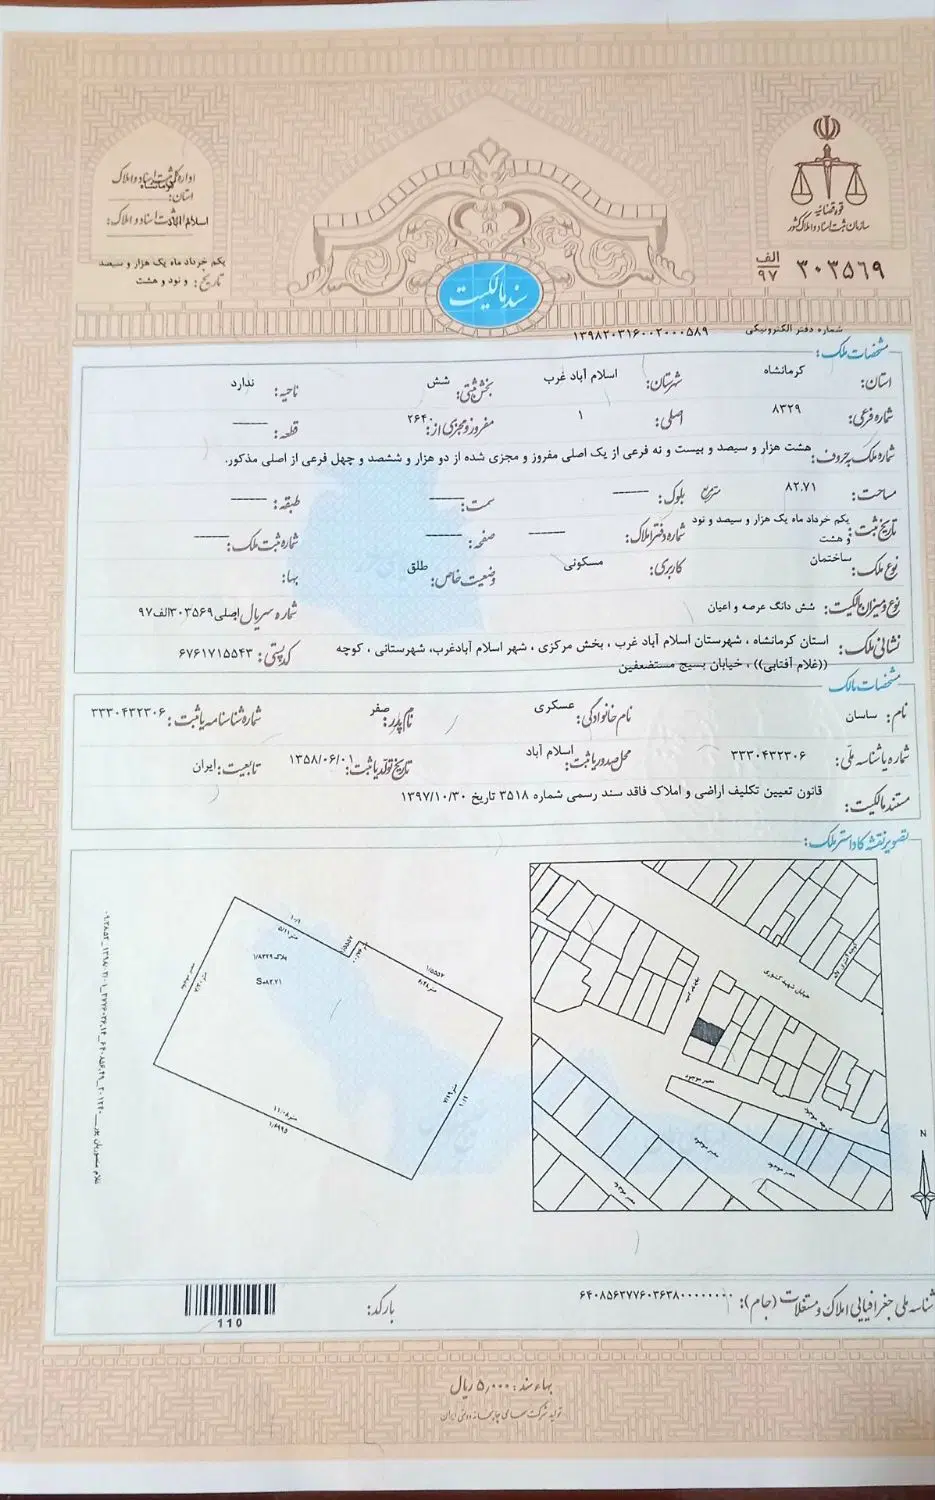 قوه قضائیه
سازمان ثبت اسناد و املاک کشور
۳۰۳۵۶۹ الف ۹۷
اداره کل ثبت اسناد و املاک
استان: کرمانشاه
ثبت اسناد و املاک: اسلام آباد
تاریخ: یکم خرداد ماه یک هزار و سیصد و نود و هشت
سند مالکیت
شماره دفتر الکترونیکی ۱۳۹۸۲۰۳۱۶۰۰۲۰۰۰۵۸۹
مشخصات ملک:
استان: کرمانشاه شهرستان: اسلام آباد غرب بخش ثبتی: شش ناحیه: ندارد
شماره فرعی: ۸۳۲۹ اصلی: ۱ مفروز و مجزی از: ۲۶۴۰ قطعه: ------
شماره ملک به حروف: هشت هزار و سیصد و بیست و نه فرعی از یک اصلی مفروز و مجزی شده از دو هزار و ششصد و چهل فرعی از اصلی مذکور.
مساحت: ۸۲.۷۱ متر مربع بلوک: ------ سمت: ------ طبقه: ------
تاریخ ثبت: یکم خرداد ماه یک هزار و سیصد و نود و هشت شماره دفتر املاک: ------ صفحه: ------ شماره ثبت ملک: ------
نوع ملک: ساختمان کاربری: مسکونی وضعیت خاص: طلق بها:
نوع و میزان مالکیت: شش دانگ عرصه و اعیان شماره سریال اصلی ۳۰۳۵۶۹الف۹۷
نشانی ملک: استان کرمانشاه ، شهرستان اسلام آباد غرب ، بخش مرکزی ، شهر اسلام آبادغرب، شهرستانی ، کوچه کد پستی: ۶۷۶۱۷۱۵۵۴۳
((غلام آفتابی)) ، خیابان بسیج مستضعفین
مشخصات مالک
نام: ساسان نام خانوادگی: عسکری نام پدر: صفر شماره شناسنامه یا ثبت: ۳۳۳۰۴۳۲۳۰۶
شماره یا شناسه ملی: ۳۳۳۰۴۳۲۳۰۶ محل صدور یا ثبت: اسلام آباد تاریخ تولد یا ثبت: ۱۳۵۸/۰۶/۰۱ تابعیت: ایران
مستند مالکیت: قانون تعیین تکلیف اراضی و املاک فاقد سند رسمی شماره ۳۵۱۸ تاریخ ۱۳۹۷/۱۰/۳۰
تصویر نقشه کاداستر ملک:
پلاک ۱/۸۳۲۹
S=۸۲.۷۱
۱۱/۰۸ متر
خیابان شهید کشوری
معبر موجود
معبر موجود
معبر موجود
معبر موجود
N
شناسه ملی جغرافیایی املاک و مستغلات (جام): ۶۴۰۸۵۶۳۷۷۶۰۳۶۳۸۰۰۰۰۰۰۰۰
بارکد:
110
بهاء سند : ۵٫۰۰۰ ریال
تولید شرکت سهامی چاپخانه دولتی ایران